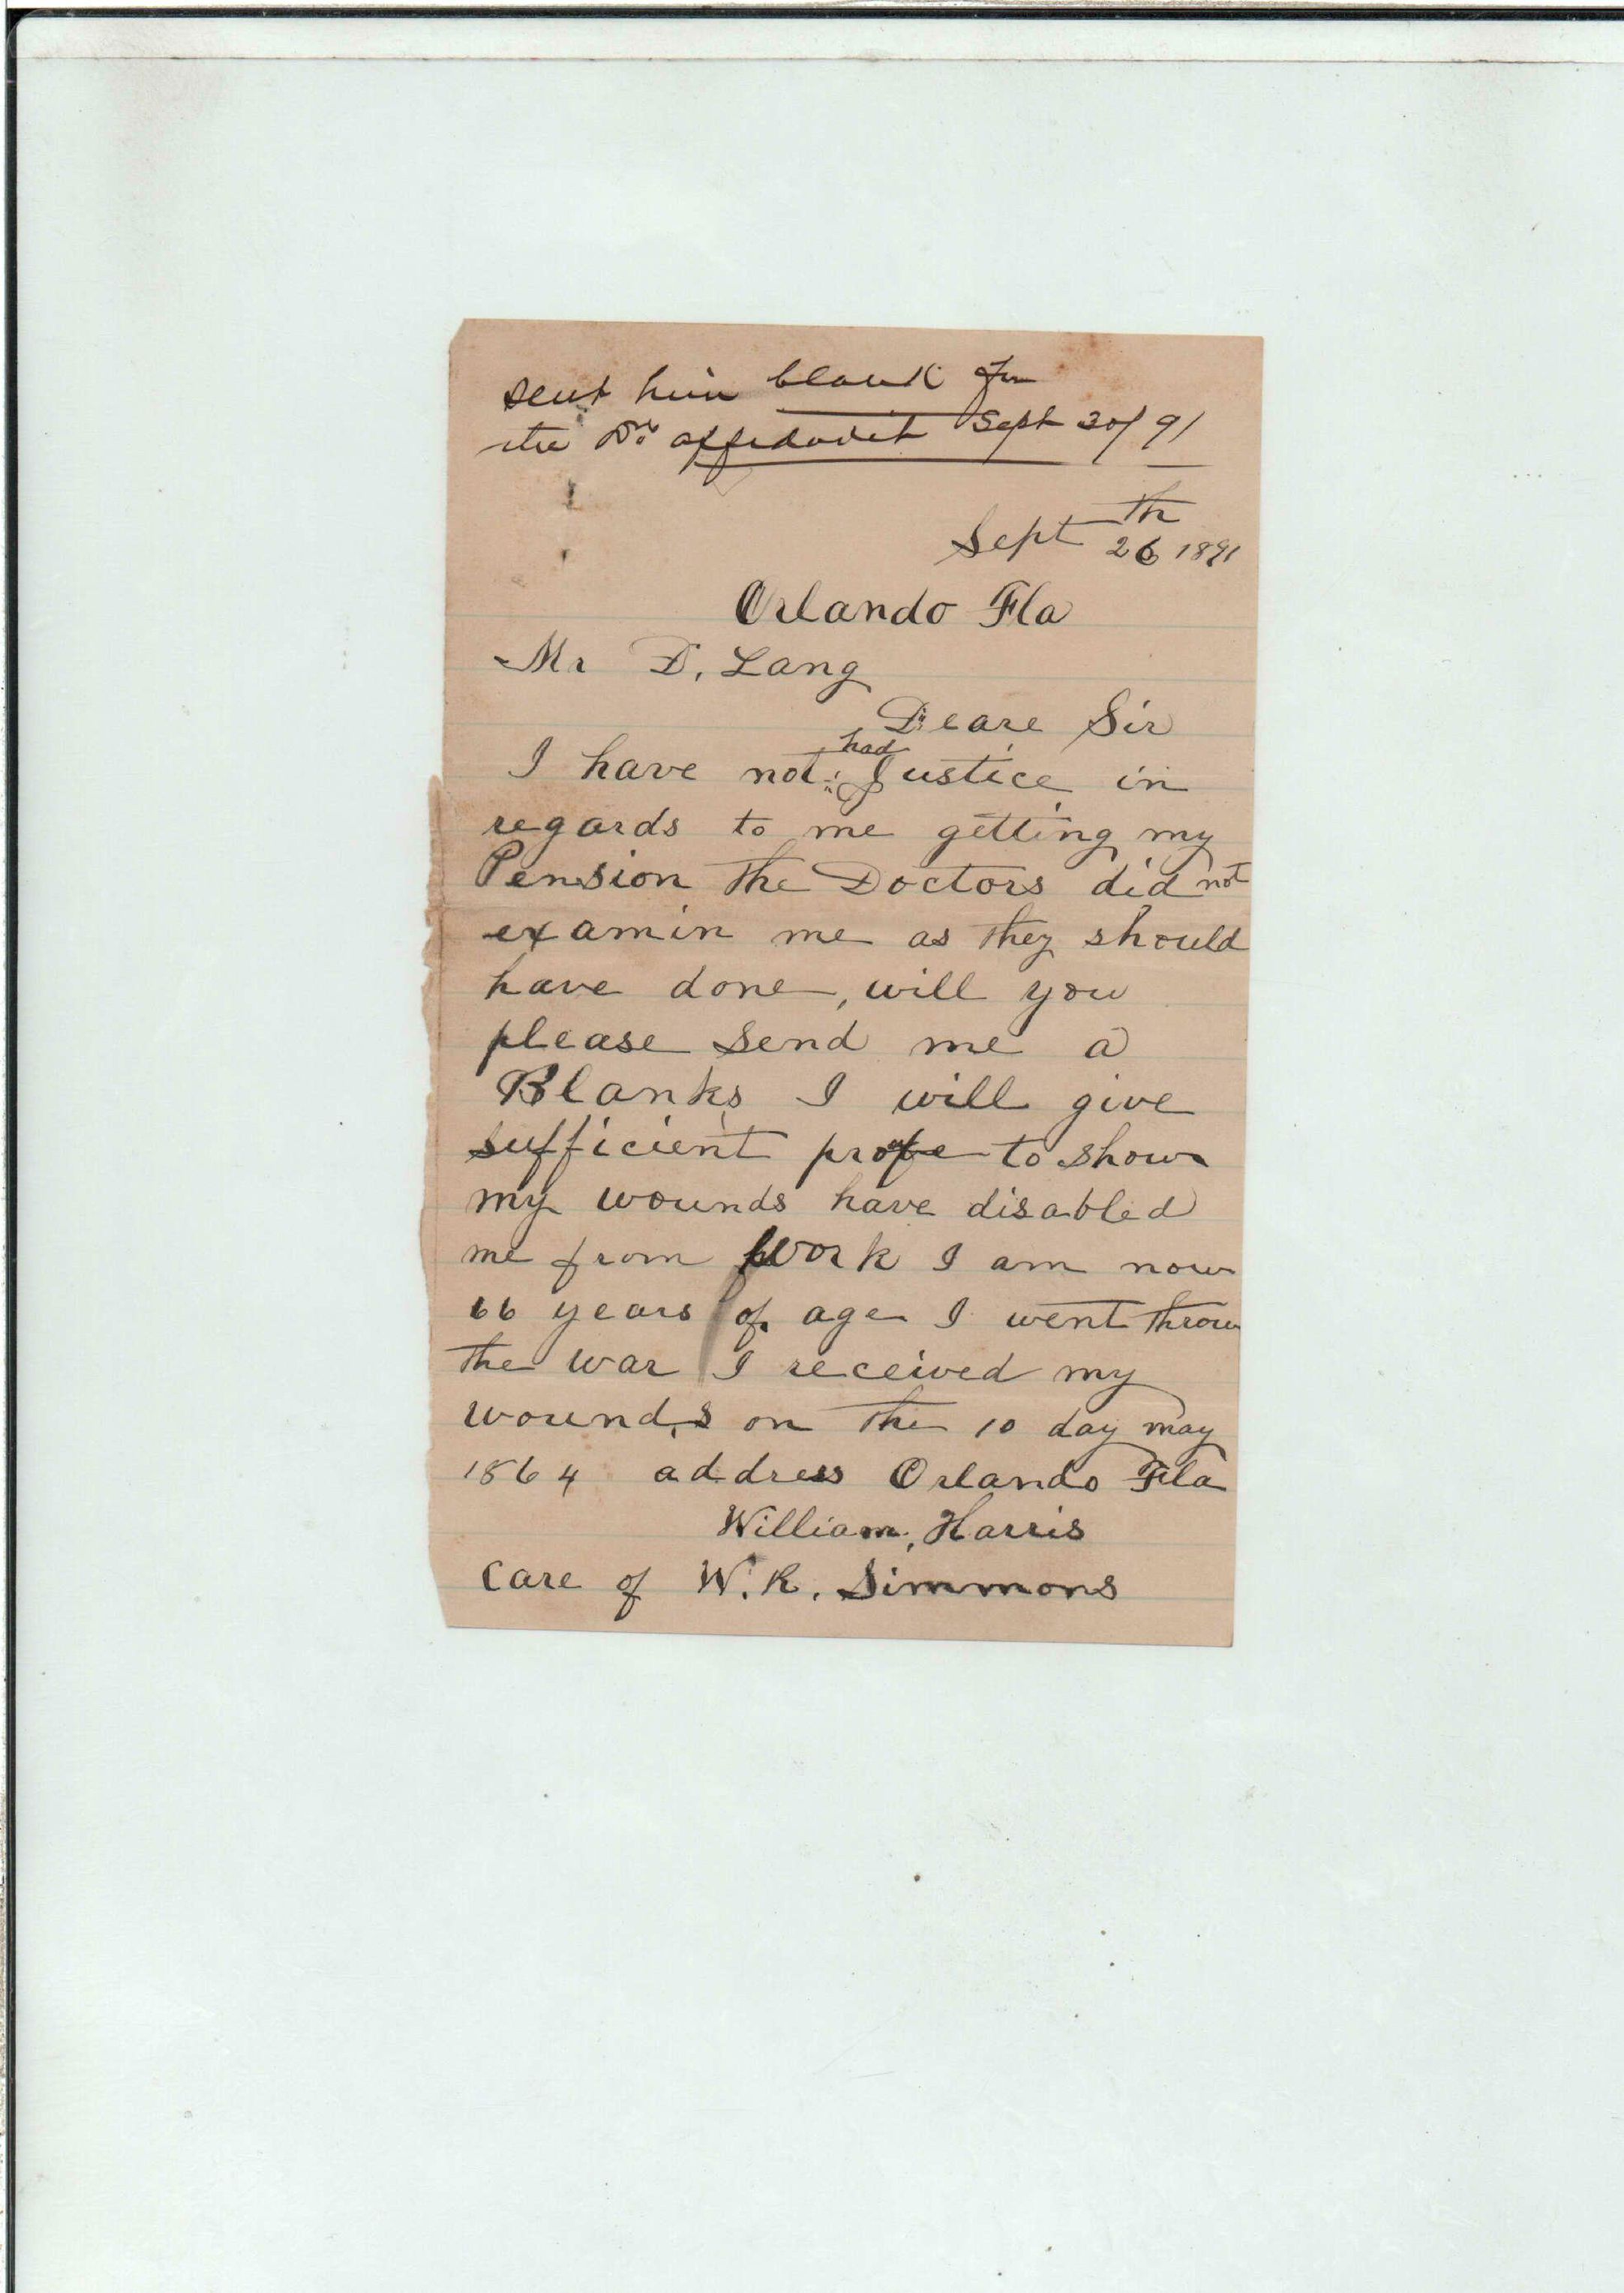 sent him blank for
the Drs affidavit Sept 30/91
Sept 26th 1891
Orlando Fla
Mr D. Lang
Deare Sir
I have not had Justice in
regards to me getting my
Pension the Doctors did not
examin me as they should
have done, will you
please send me a
Blanks I will give
sufficient profe to show
my wounds have disabled
me from Work I am now
66 years of age I went throu
the war I received my
wounds on the 10 day may
1864 address Orlando Fla
William, Harris
Care of W. R. Simmons